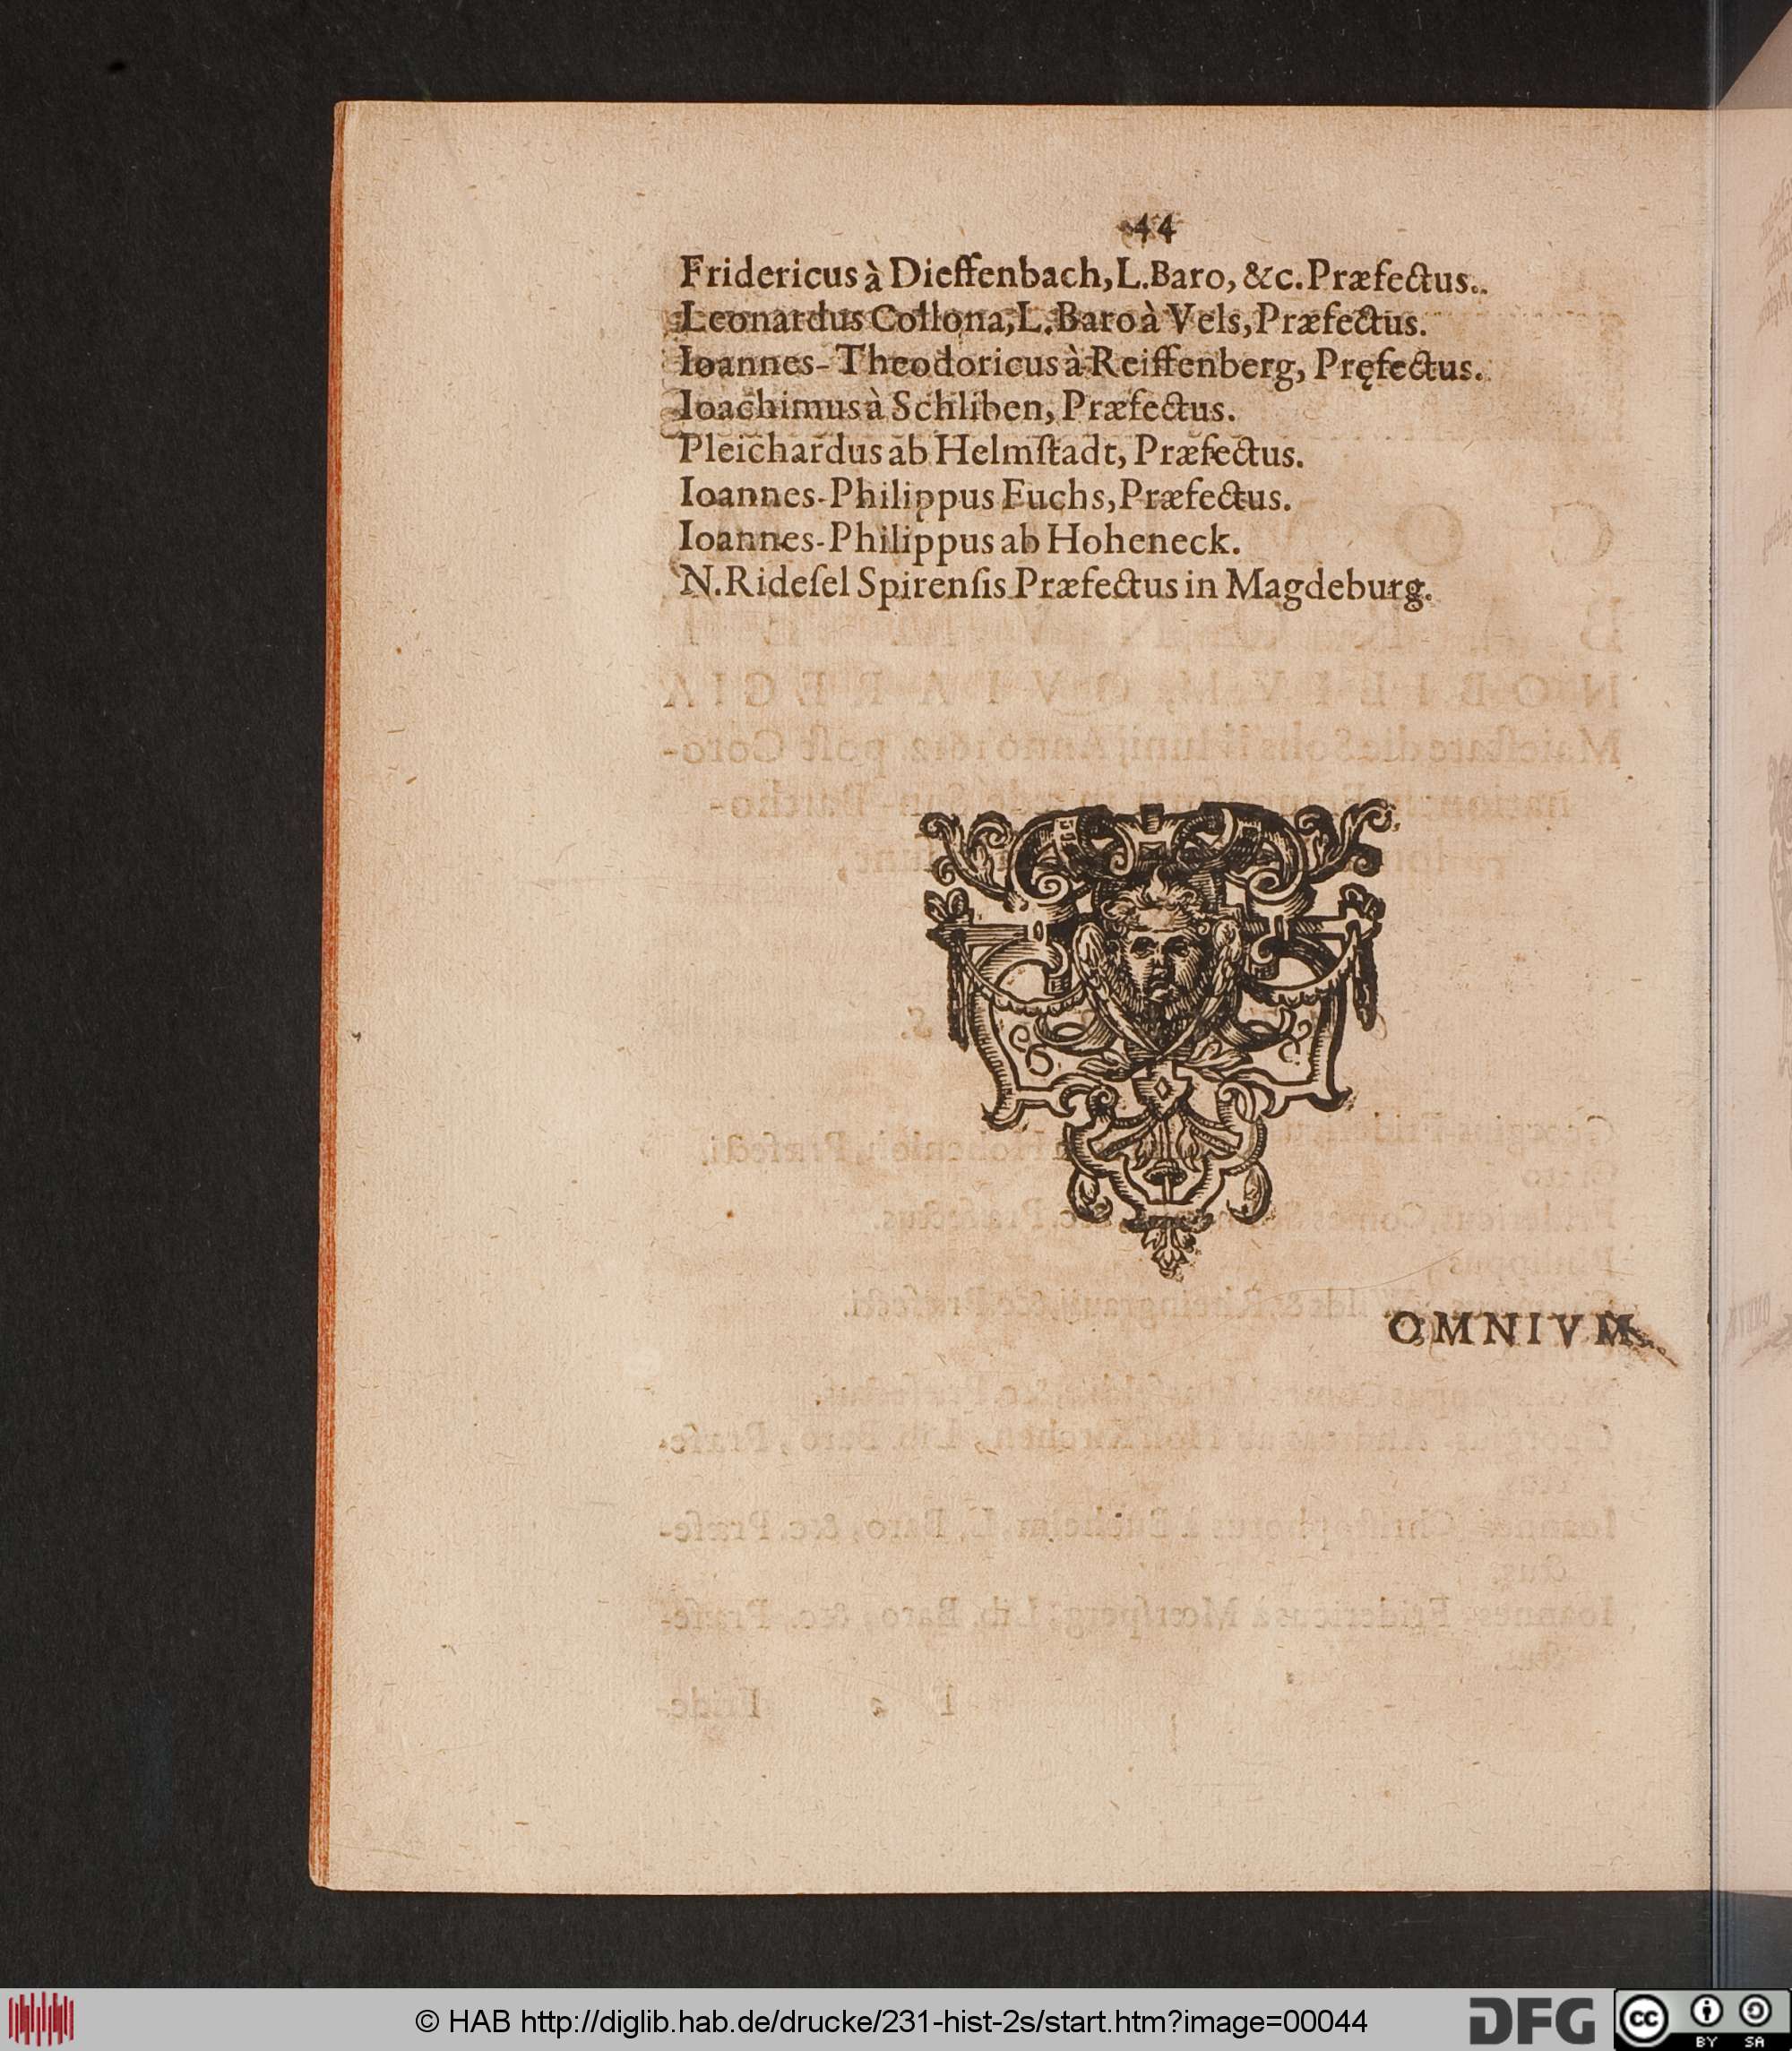 44
Fridericus à Dieffenbach, L. Baro, &c. Præfectus.
Leonardus Collona, L. Baro à Vels, Præfectus.
Ioannes-Theodoricus à Reiffenberg, Pręfectus.
Ioachimus à Schliben, Præfectus.
Pleichardus ab Helmſtadt, Præfectus.
Ioannes-Philippus Fuchs, Præfectus.
Ioannes-Philippus ab Hoheneck.
N. Rideſel Spirenſis Præfectus in Magdeburg.
OMNIVM
© HAB http://diglib.hab.de/drucke/231-hist-2s/start.htm?image=00044
DFG
cc
BY SA